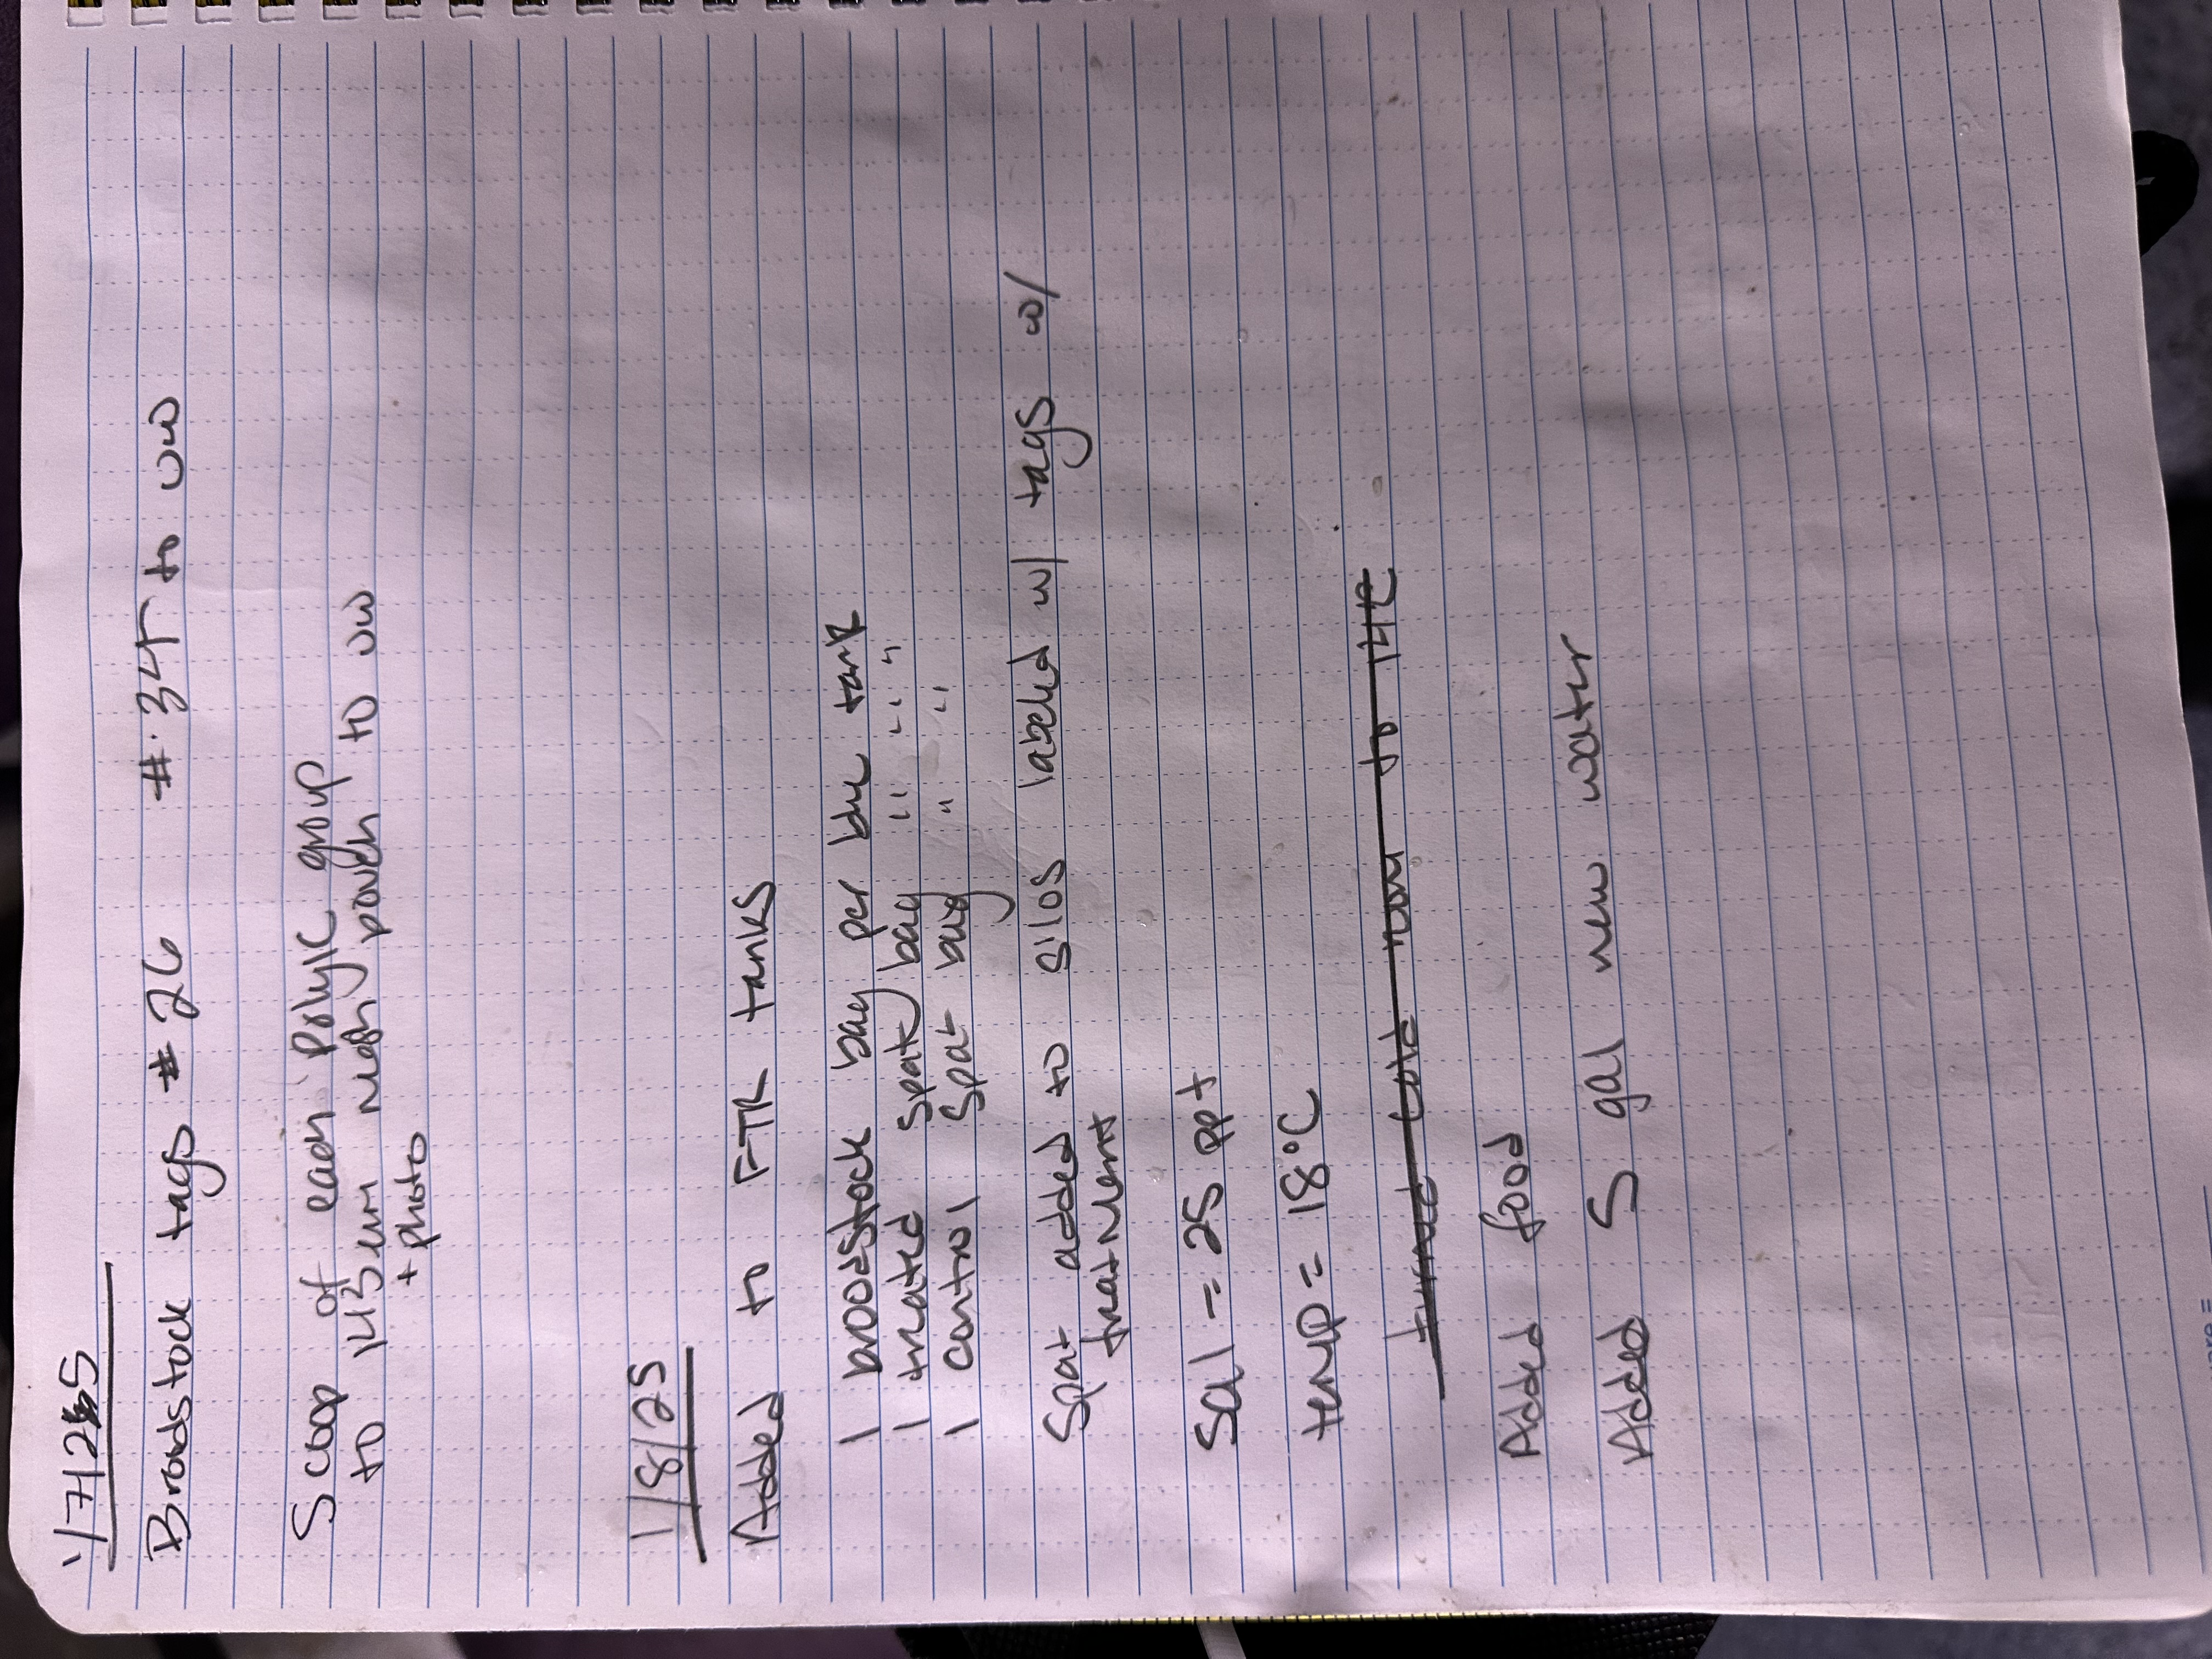 1/7/25
Broodstock tags # 26 # 34 to UW
Scoop of each PolyIC group
to 143 um mesh pouch to UW
+ photo
1/8/25
Added to FTR tanks
1 broodstock bag per blue tank
1 treated spat bag " " "
1 control spat bag " "
Spat added to silos labeled w/ tags w/
treatment
Sal = 25 ppt
temp = 18°C
turned cold room to 14C
Added food
Added 5 gal new water